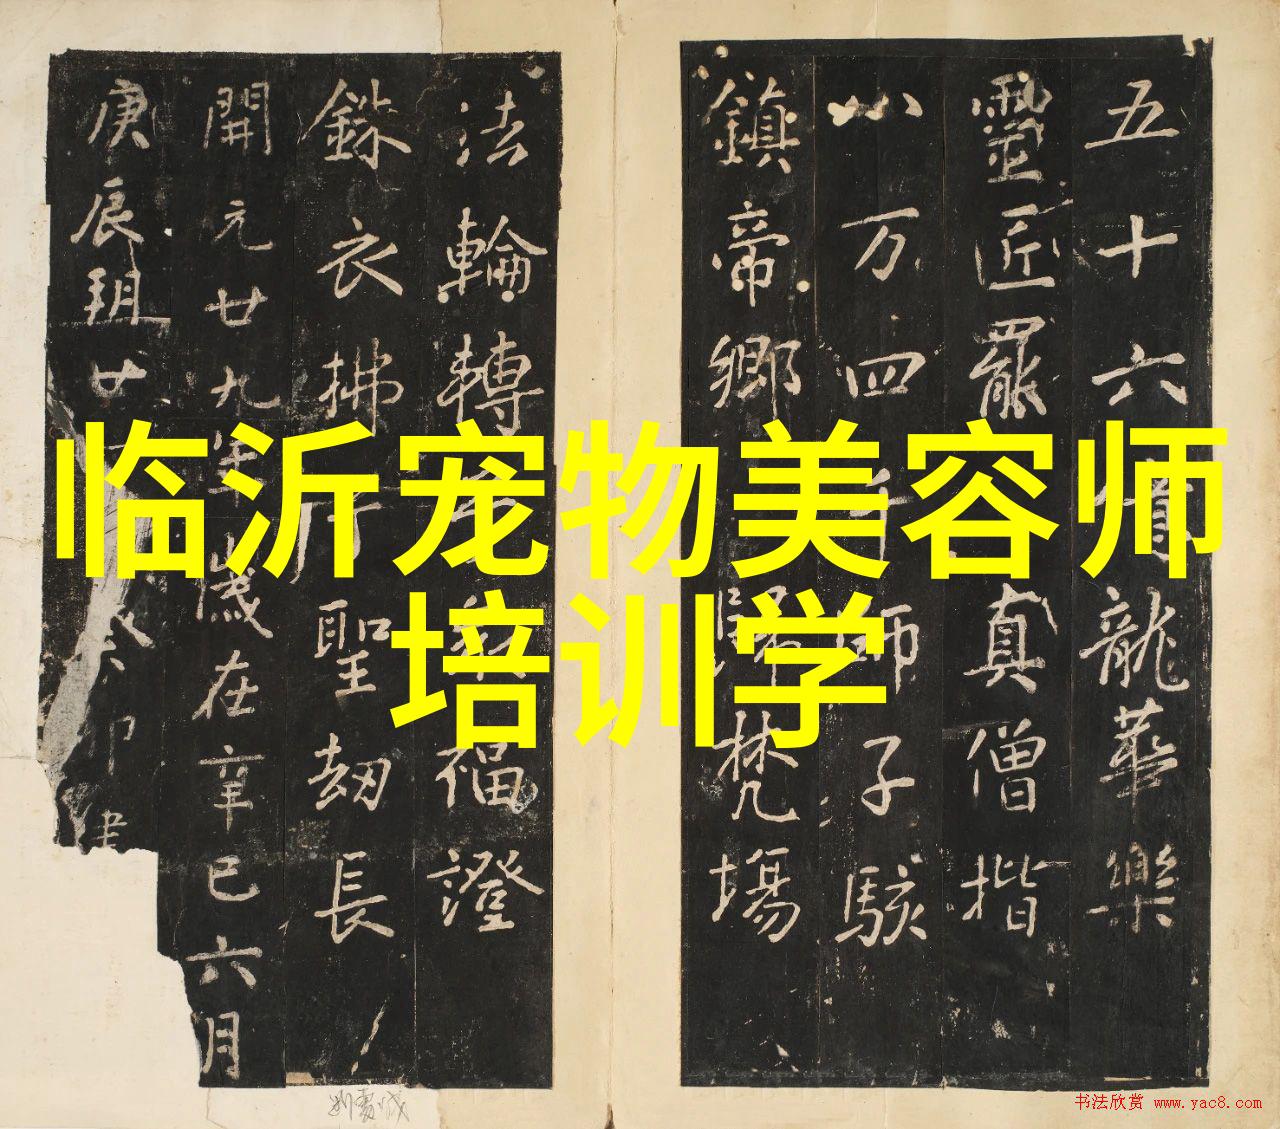 五十六億龍華樂
靈匠罷 真僧揩
八万四千師子駭
鎮帝鄉 歸梵場
法輪轉 福證
銖衣拂 聖劫長
開元廿九年歲在辛巳六月
庚辰朔廿 癸卯建
临沂宠物美容师
培训学
书法欣赏 www.yac8.com